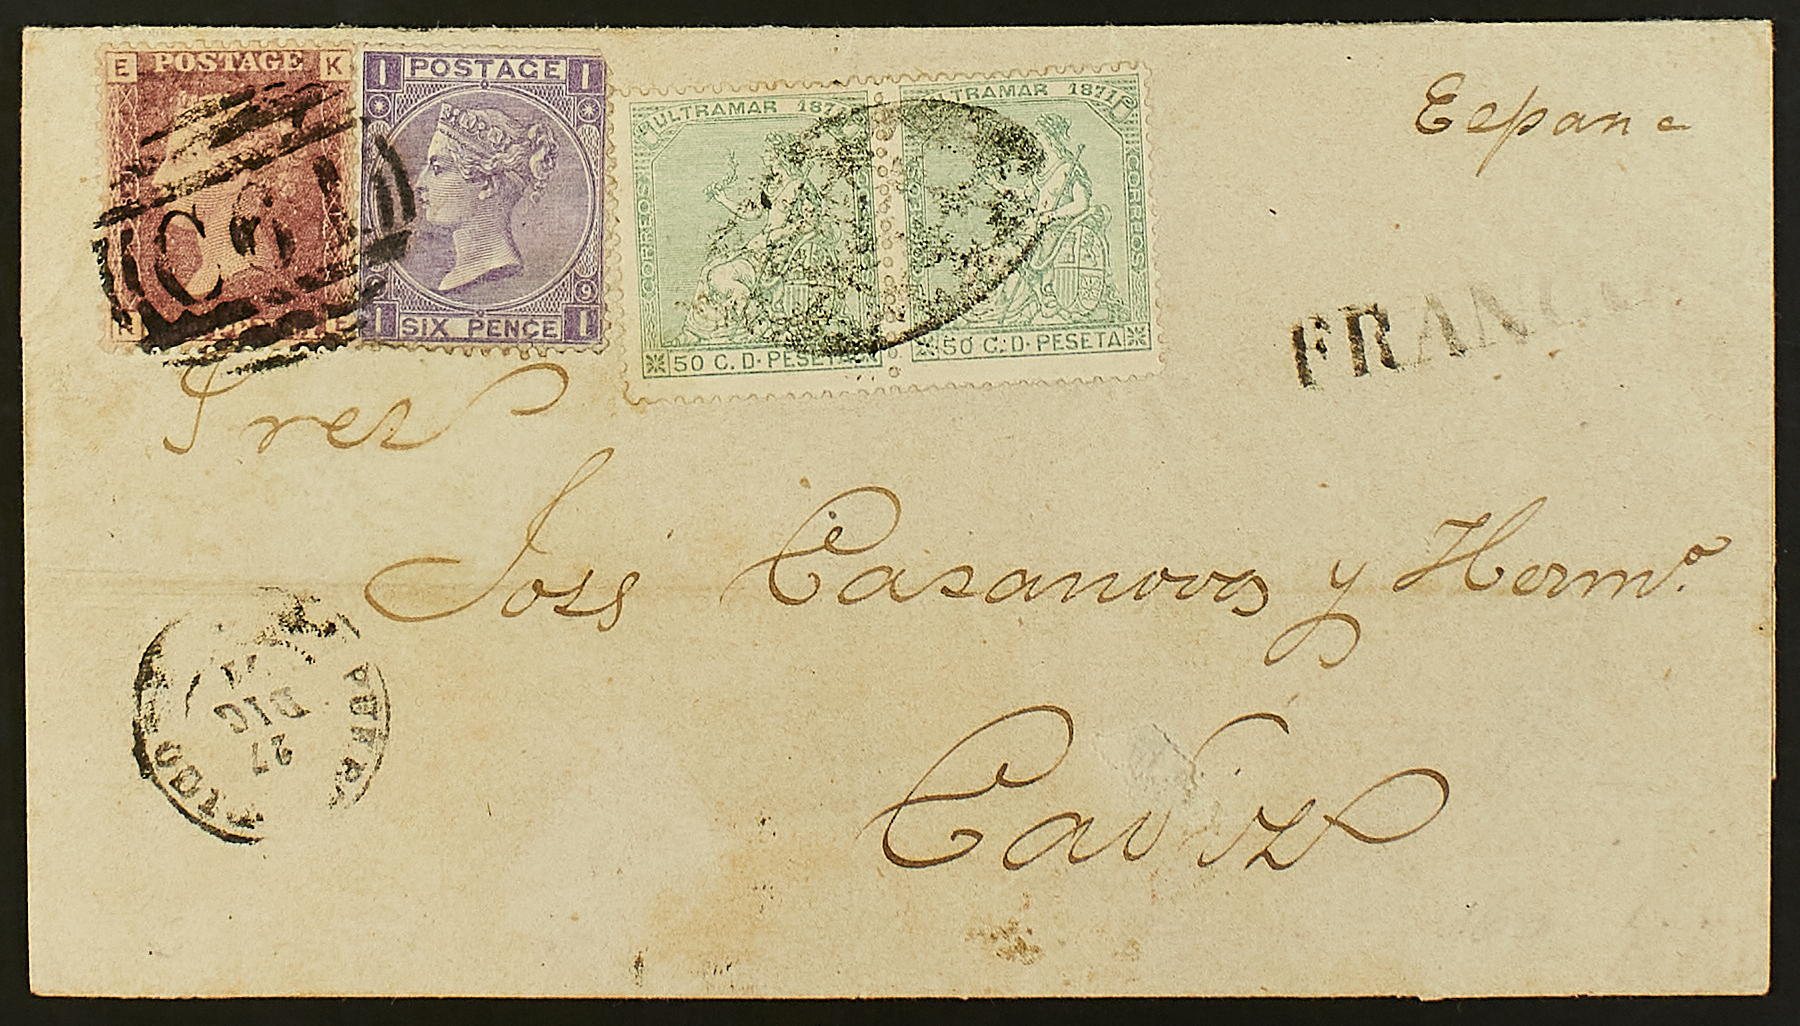 E POSTAGE K
C61
E
I POSTAGE I
9
I SIX PENCE I
ULTRAMAR 1871
CORREOS
50 C. D. PESETA
ULTRAMAR 1871
CORREOS
50 C. D. PESETA
Eepana
FRANCO
Sres
Jose Casanovas y Hermo.
Cadiz
27
DIC
71